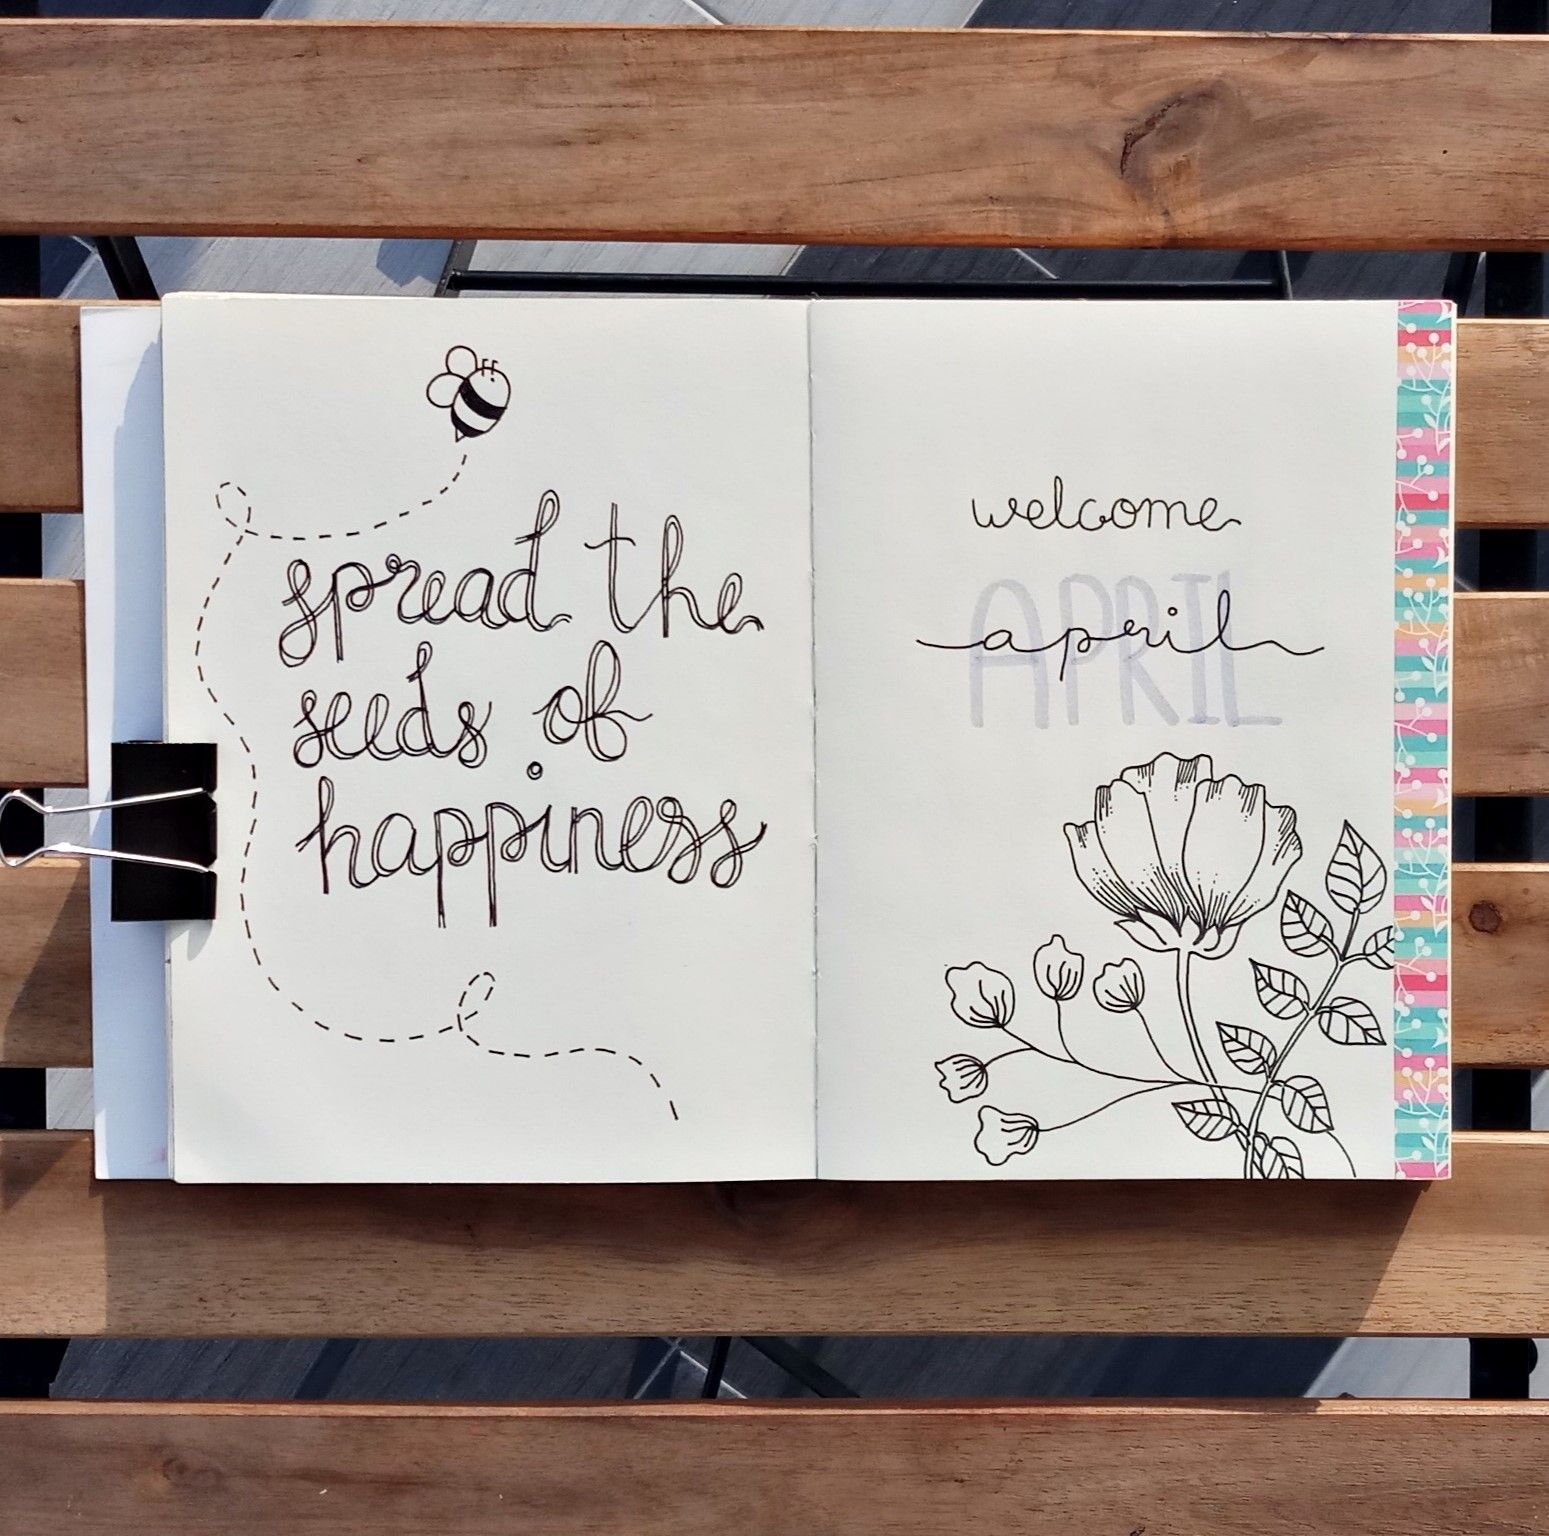 spread the
seeds of
happiness
welcome
APRIL
april